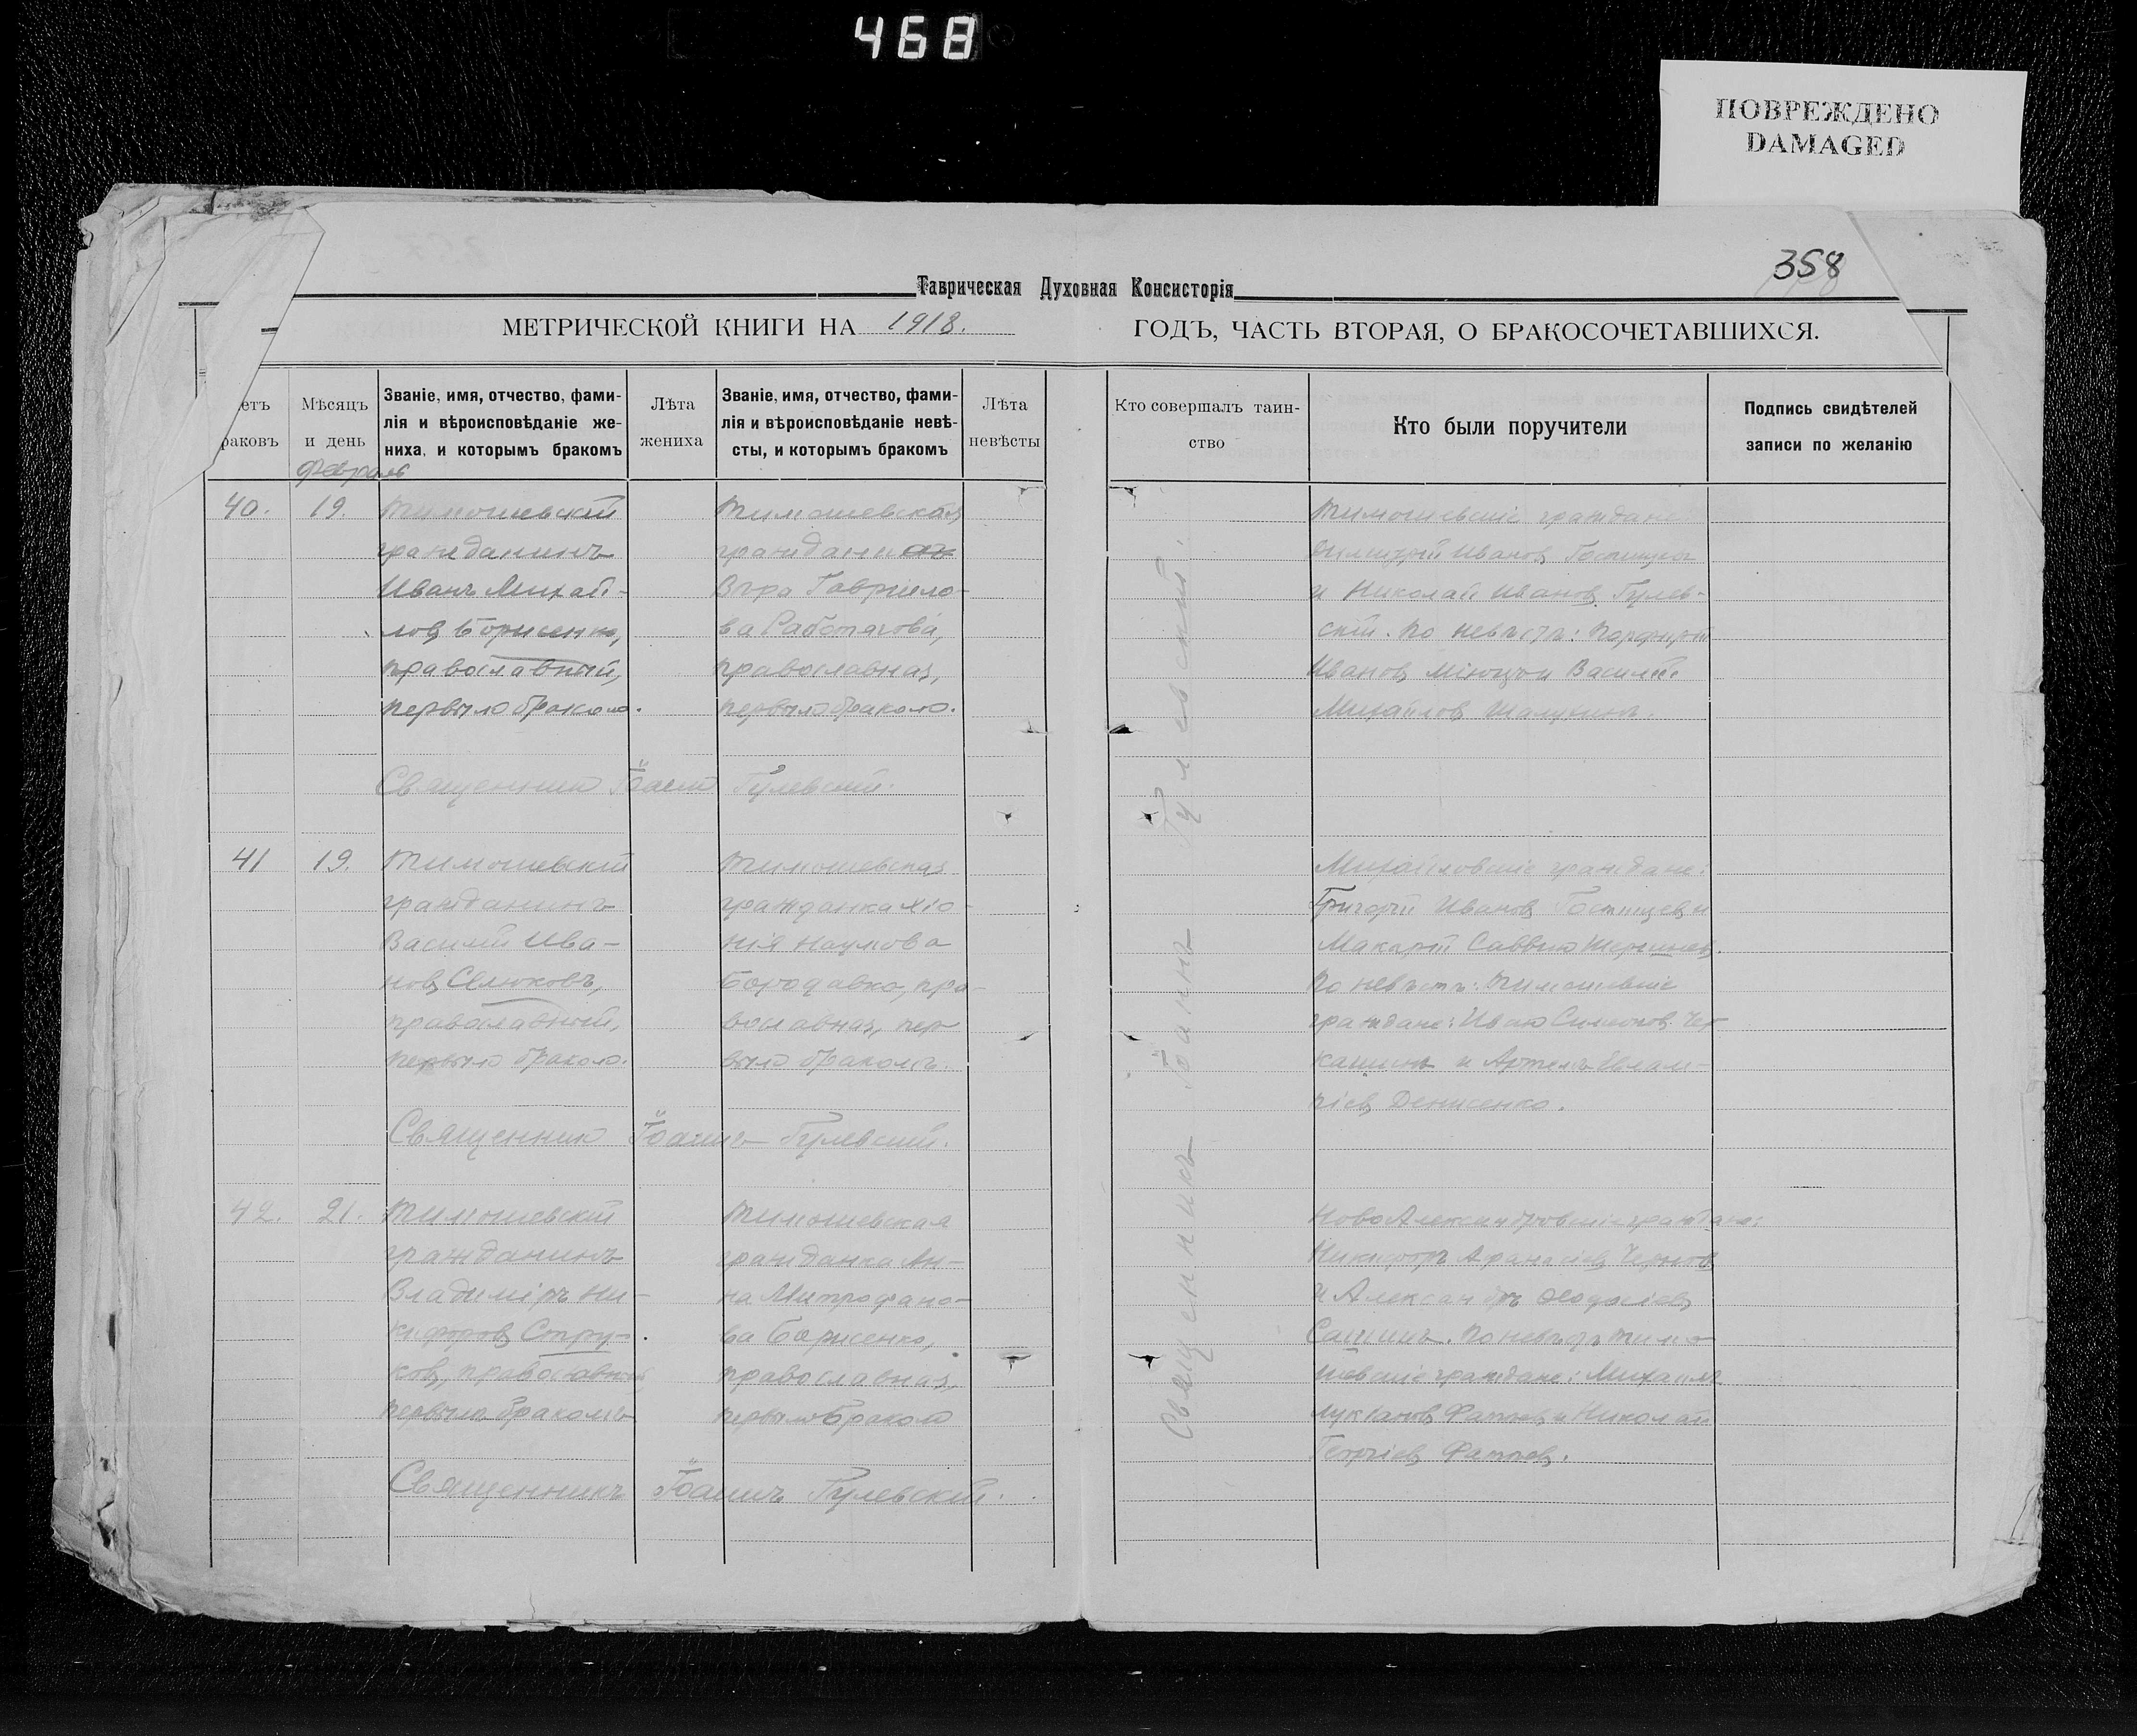 468
ПОВРЕЖДЕНО
DAMAGED
358
Таврическая Духовная Консисторія
МЕТРИЧЕСКОЙ КНИГИ НА 1918. ГОДЪ, ЧАСТЬ ВТОРАЯ, О БРАКОСОЧЕТАВШИХСЯ.
етъ
раковъ
Мѣсяцъ
и день
Февраль
Званіе, имя, отчество, фами-
лія и вѣроисповѣданіе же-
ниха, и которымъ бракомъ
Лѣта
жениха
Званіе, имя, отчество, фами-
лія и вѣроисповѣданіе невѣ-
сты, и которымъ бракомъ
Лѣта
невѣсты
Кто совершалъ таин-
ство
Кто были поручители
Подпись свидѣтелей
записи по желанію
40.
19.
Тимошевскій
гражданинъ
Иванъ Михай-
лов Борисенко,
православный,
первымъ бракомъ.
Тимошевская
Вѣра Гавріило-
ва
православная,
первымъ бракомъ.
Тимошевскіе граждане
Димитрій Иванов
и Николай Иванов Гулев-
скій. По невѣстѣ: Порфирій
Иванов и Василій
Михайлов
Священник Іоанн Гулевскій.
41
19.
Тимошевскій
гражданинъ
Василій Ива-
нов Севлюковъ,
православный,
первымъ бракомъ.
Тимошевская
гражданка Хіо-
нія Наумова
Бородавко, пра-
вославная, пер-
вымъ бракомъ.
Михайловскіе граждане:
Григорій Иванов Гостищев и
Макарій Саввин
По невѣстѣ: Тимошевскіе
граждане: Иван Симонов Чер-
кашин и Артемъ Евлам-
піев Денисенко.
Священник Іоаннъ Гулевскій.
42.
21.
Тимошевскій
гражданинъ
Владиміръ Ни-
кифоров Стру-
ков, православный
первымъ бракомъ
Тимошевская
гражданка Ан-
на Митрофано-
ва Борисенко,
православная,
первымъ браком
НовоАлександровскіе граждане:
Никифоръ Афанасіев Чернов
и Александръ Феодосіев
Сашинъ. По невѣстѣ Тимо-
шевскіе граждане: Михаилъ
Лукіанов и Николай
Георгіев
Священникъ Іоаннъ Гулевскій.
Священникъ Іоаннъ Гулевскій.